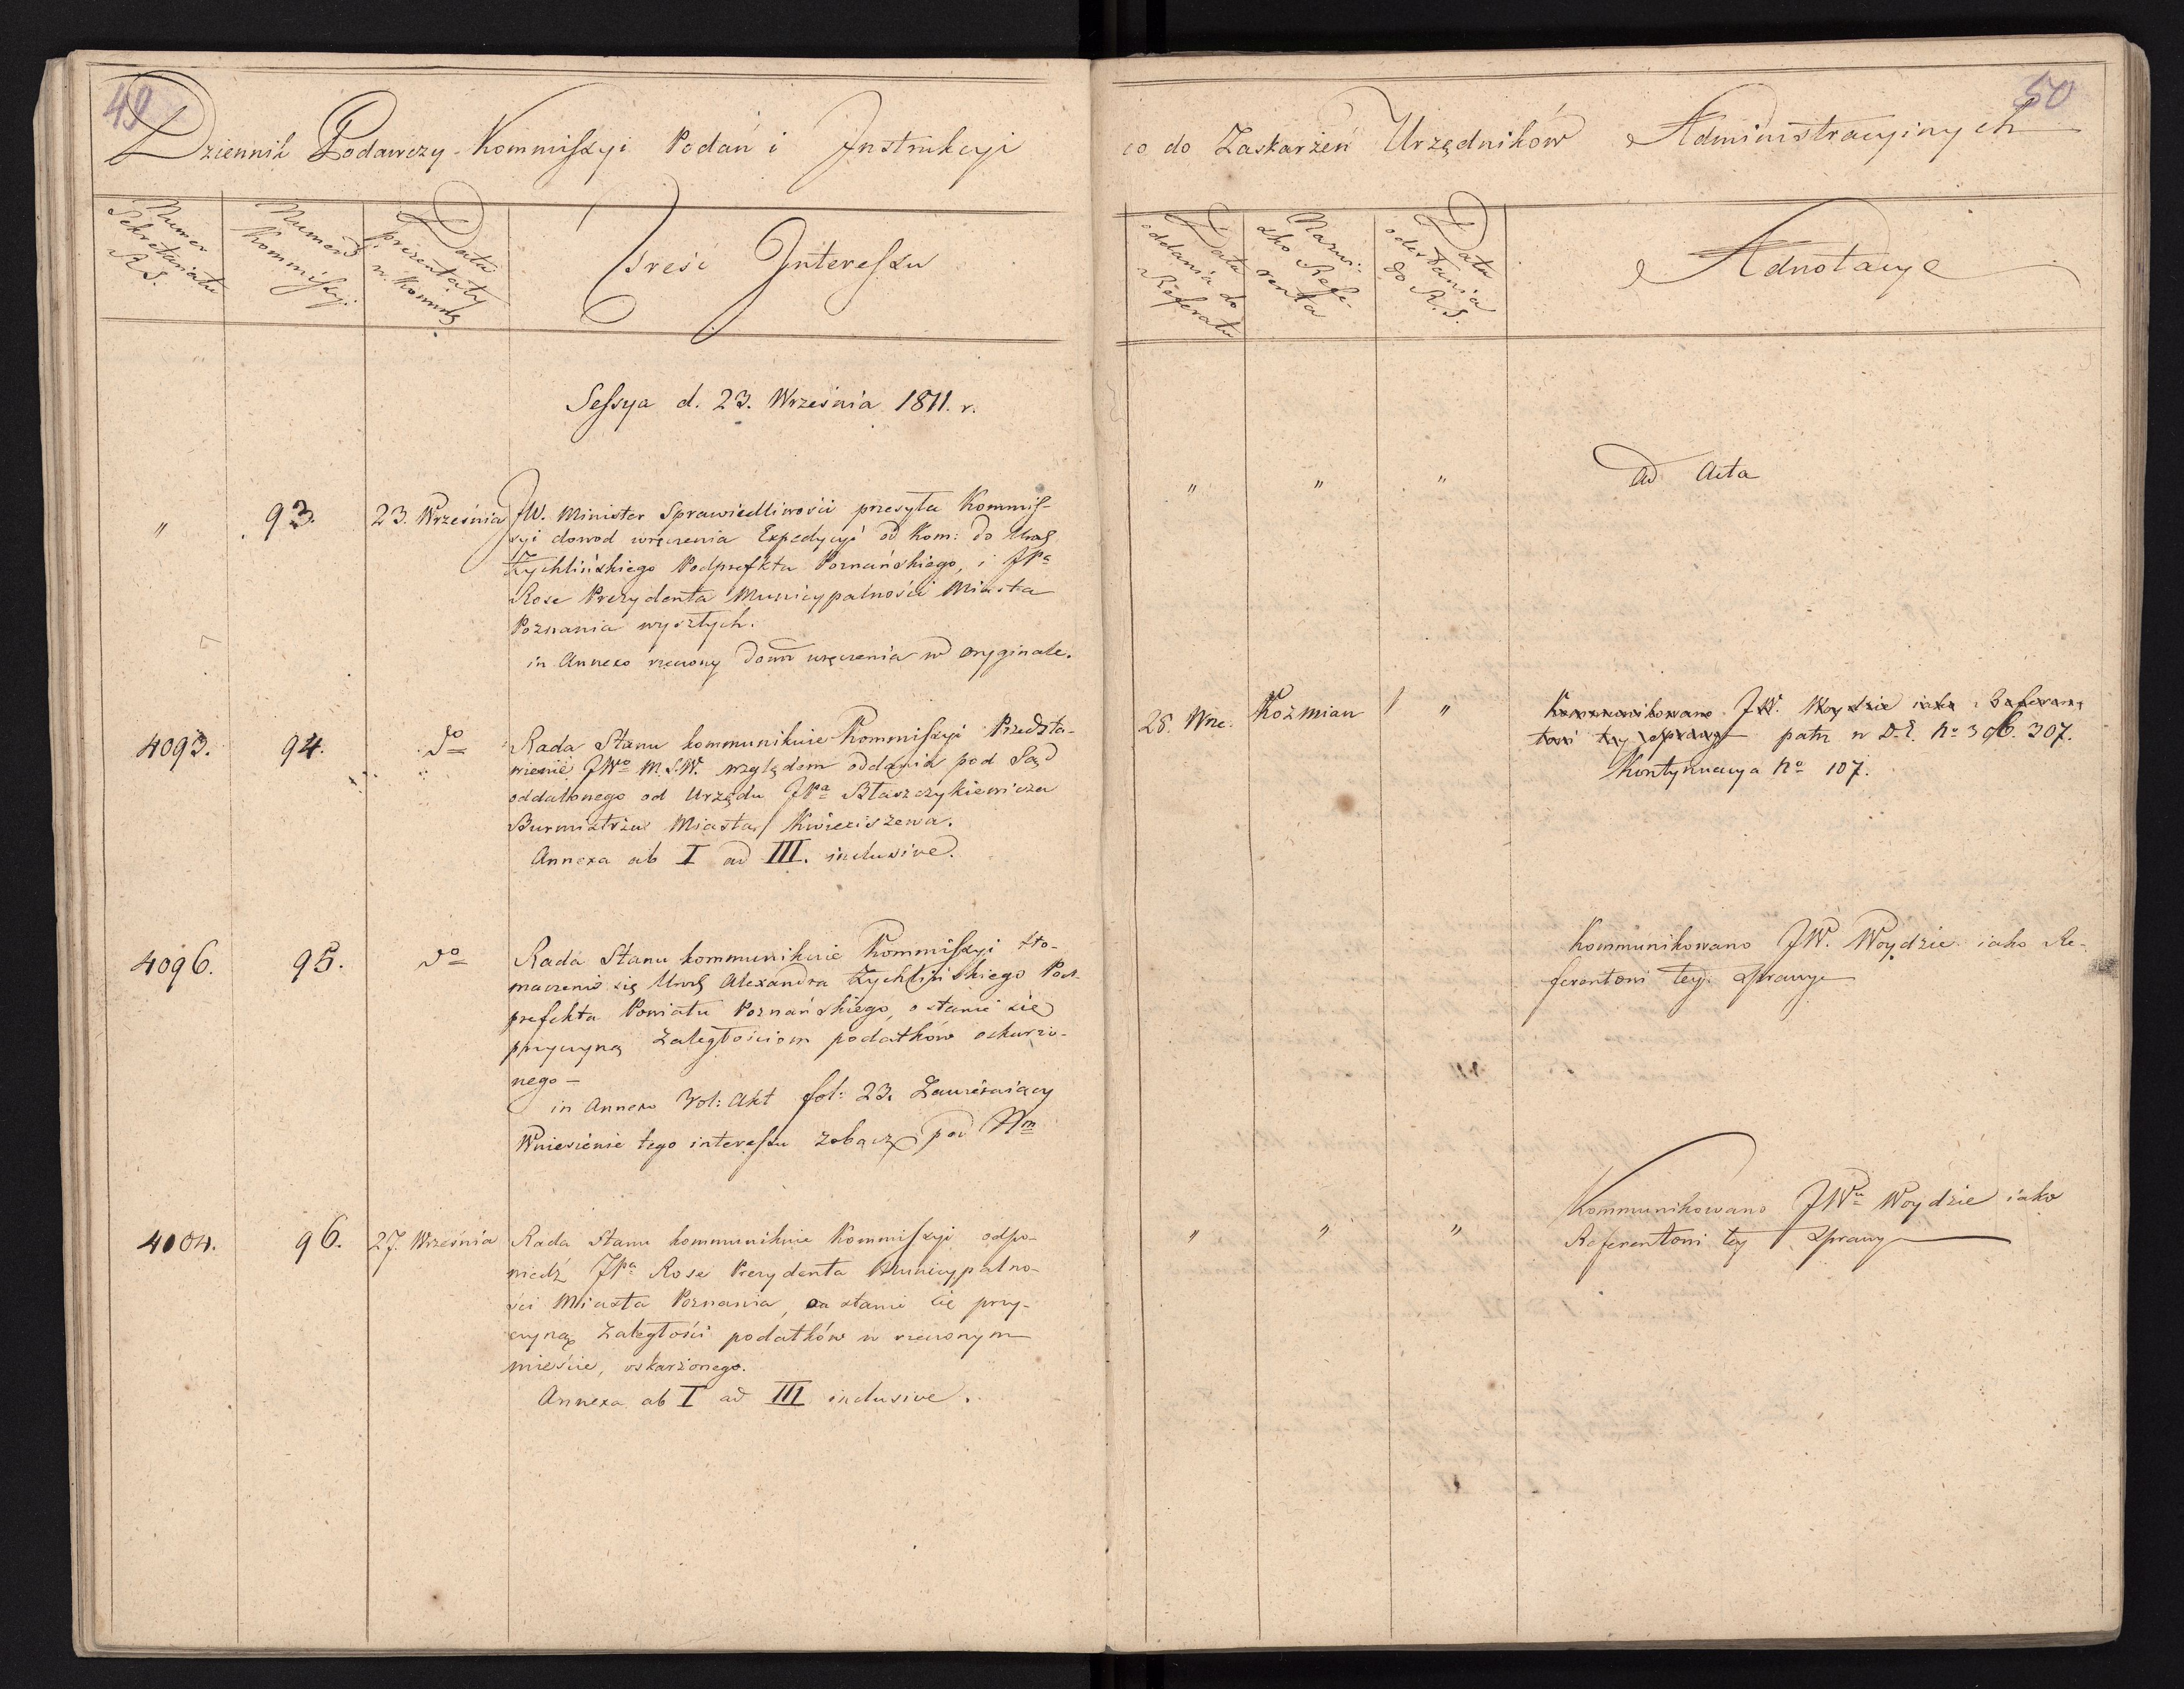 49
Dziennik Podawczy Kommissyi Podań i Instrukcyi
Numer Sekretariatu R. S.
Numer Kommissyi
Data prezentaty w Kommis.
Treść Interessu
Sessya d. 23. Września 1811. r.
" 93. 23. Września JW. Minister Sprawiedliwości przesyła Kommis-
syi dowod wręczenia Expedycyi od Kom: do
Zychlińskiego Podprefekta Poznańskiego, i JPa
Rose Prezydenta Municypalności Miasta
Poznania wyszłych.
in Annexo rzeczony dowód wręczenia w oryginale.
4093. 94. do Rada Stanu kommunikuie Kommissyi Przedsta-
wienie JWo M.S.W. względem oddania pod Sąd
oddalonego od Urzędu JPa Błaszczykiewicza
Burmistrza Miasta Kwieciszewa.
Annexa ab I ad III. inclusive.
4096. 95. do Rada Stanu kommunikuie Kommissyi tło-
maczenie się Alexandra Zychlińskiego Pod-
prefekta Powiatu Poznańskiego, o stanie się
przyczyną zaległościom podatków oskarżo-
nego –
in Annexo Vol: Akt fol: 23. Zawieraiący
Wniesienie tego interessu zobacz pod Nm
4104. 96. 27. Września Rada Stanu kommunikuie Kommissyi odpo-
wiedź JPa Rose Prezydenta Municypalno-
ści Miasta Poznania, o stanie się przy-
czyną zaległości podatków w rzeczonym
mieście, oskarżonego.
Annexa ab I ad III inclusive.
50
co do Zaskarżeń Urzędników Administracyinych
Data oddania do Referatu
Nazwisko Referenta
Data odesłania do R. S.
Adnotacye
" " " ad Acta
28. Wrze. Koźmian " Kommunikowano JW. Woydzie iako Referen-
towi tey sprawy patrz w D.E. No 306. 307.
Kontynuacya No 107.
Kommunikowano JW. Woydzie iako Re-
ferentowi tey sprawy
" " " Kommunikowano JWu Woydzie iako
Referentowi tey Sprawy